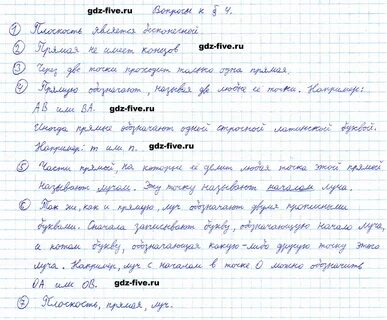 gdz-five.ru Вопросы к § 4. gdz-five.ru
1 Плоскость является бесконечной
2 Прямая не имеет концов
gdz-five.ru
3 Через две точки проходит только одна прямая.
4 Прямую обозначают, называя две любые её точки. Например:
AB или BA. gdz-five.ru gdz-five.ru
Иногда прямые обозначают одной строчной латинской буквой.
Например: m или n. gdz-five.ru
5 Части прямой, на которые её делит любая точка этой прямой
называют лучами. Эту точку называют началом луча.
6 Так же, как и прямую, луч обозначают двумя прописными
буквами. Сначала записывают букву, обозначающую начало луча,
а потом букву, обозначающую какую-либо другую точку этого
луча. Например, луч с началом в точке O можно обозначить
OA или OB. gdz-five.ru gdz-five.ru
7 Плоскость, прямая, луч.